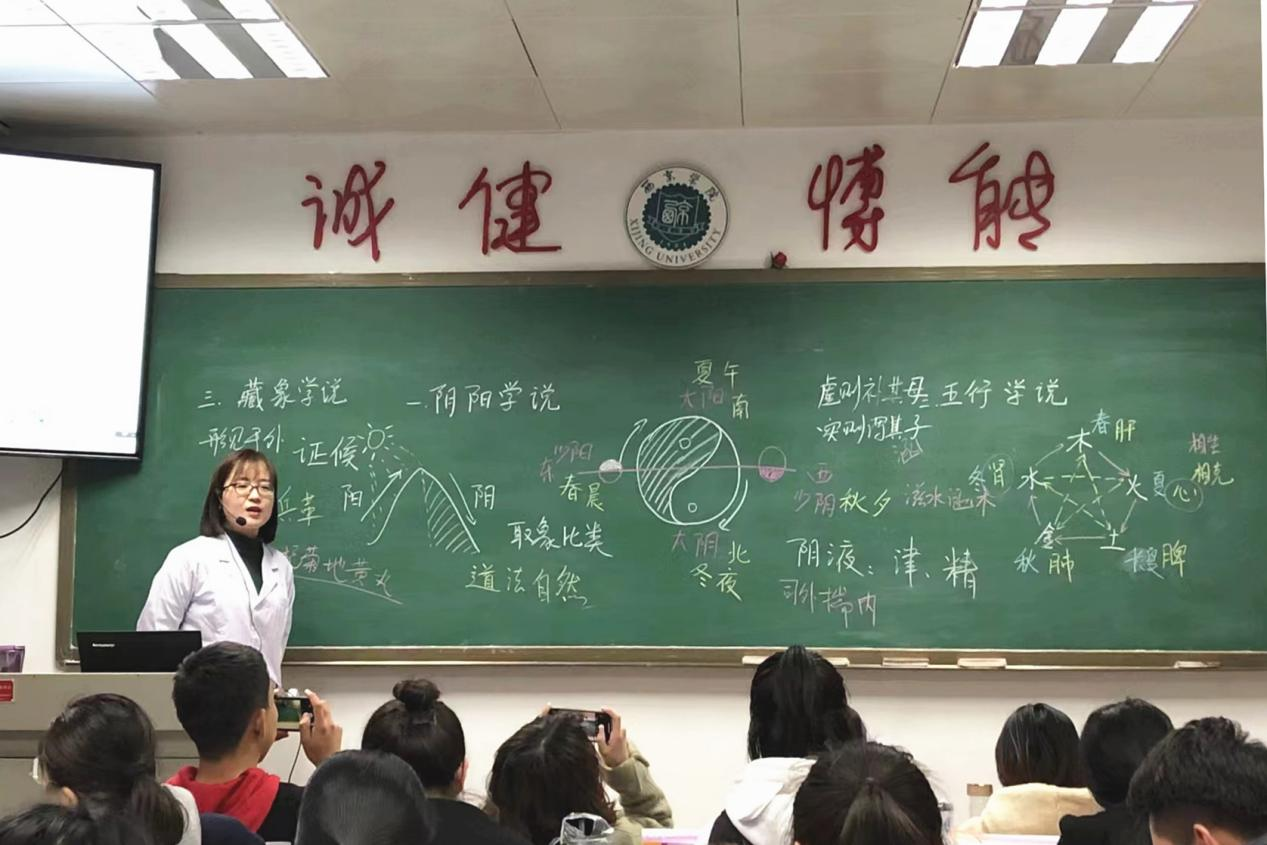 诚 健 博 能
西京学院
XIJING UNIVERSITY
三、藏象学说
形见于外
证候
兵革
杞菊地黄丸
一、阴阳学说
阳
阴
取象比类
道法自然
夏午
太阳
南
少阳
东
春晨
西
少阴秋夕
太阴
北
冬夜
虚则补其母
实则泻其子
涵
滋水涵木
阴液：津、精
司外揣内
二、五行学说
木
春肝
火
夏心
土
长夏脾
金
秋肺
水
冬肾
相生
相克
lenovo